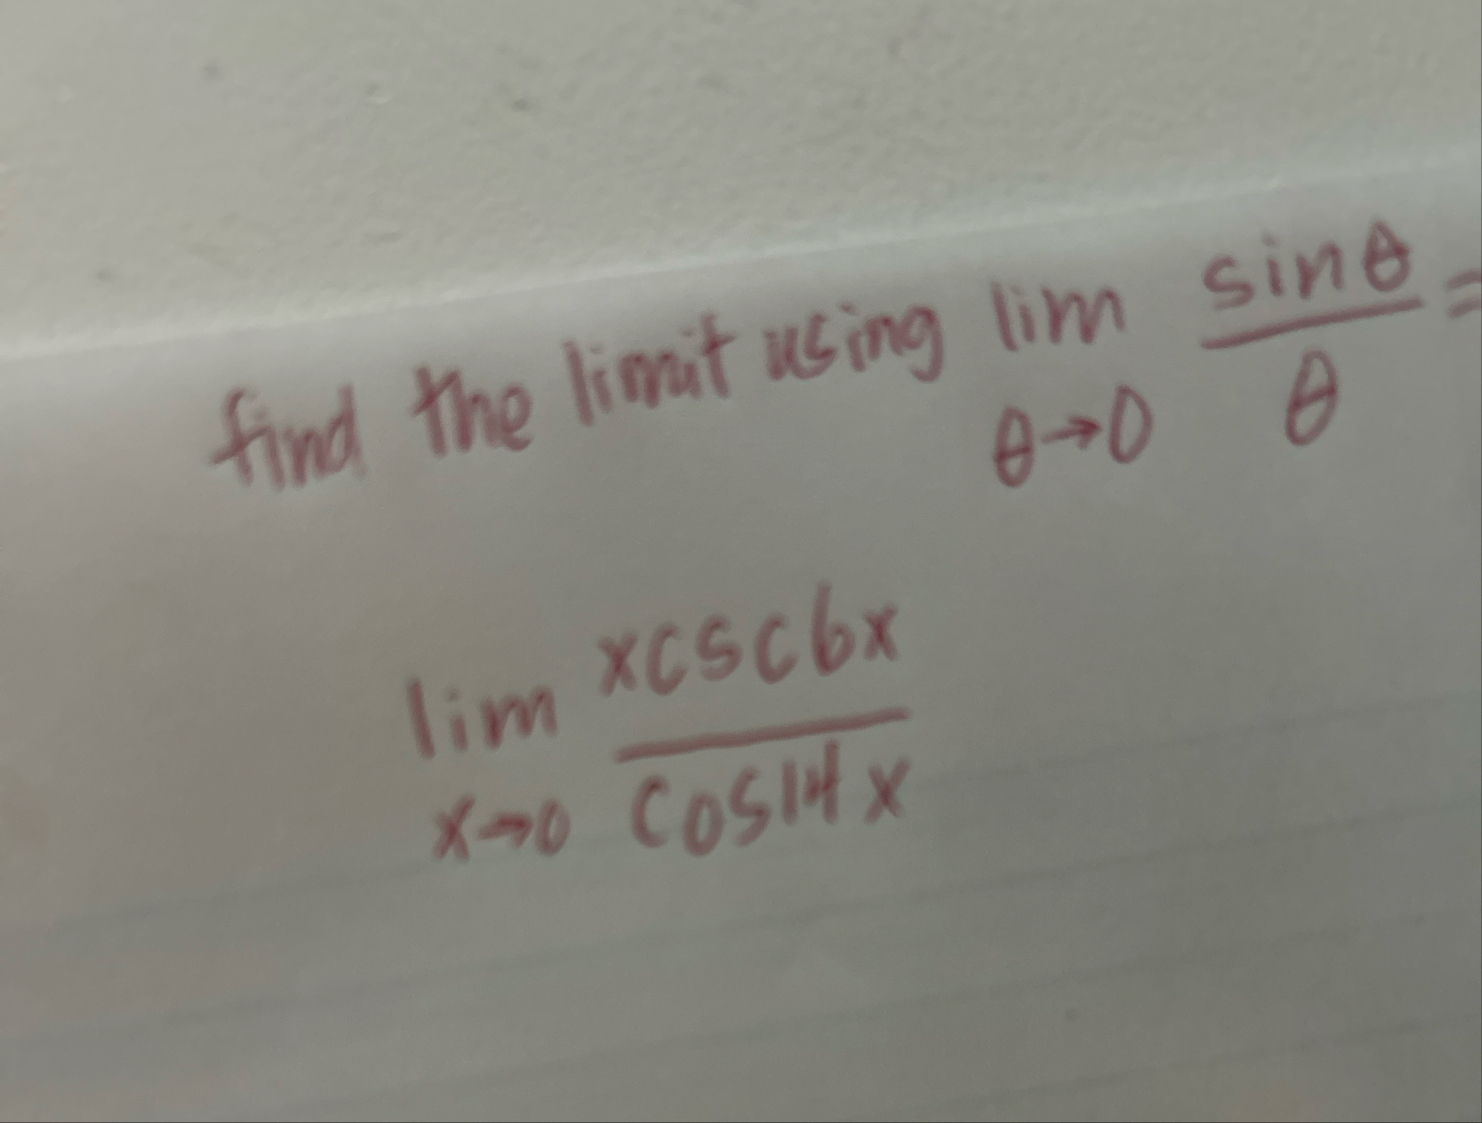 find the limit using lim sinθ/θ =
θ→0
lim xcsc6x/cos14x
x→0